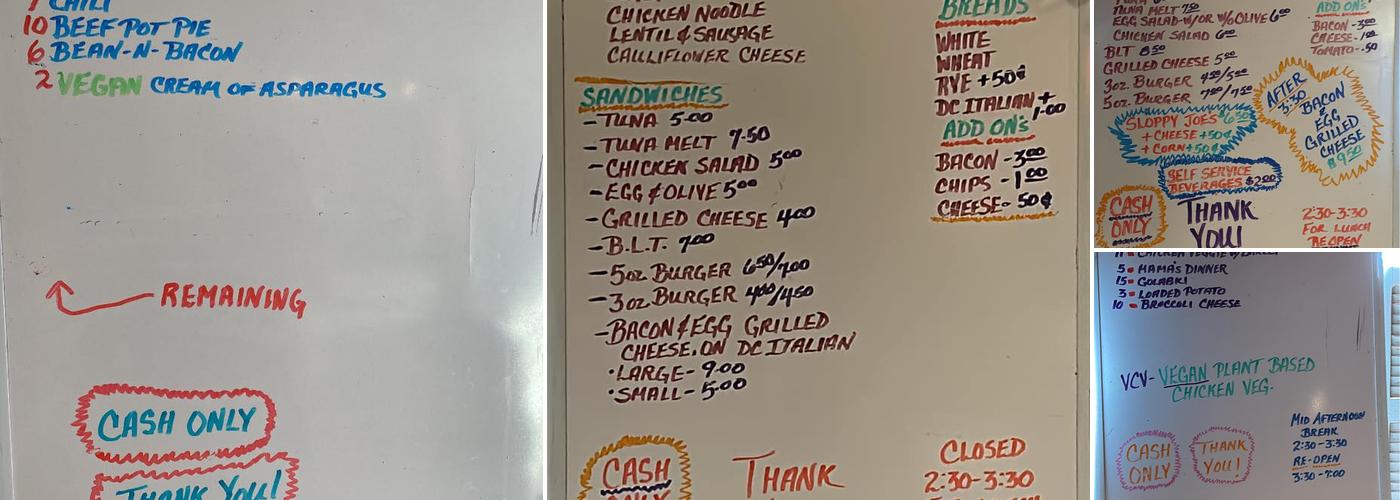 CHILI
10 BEEF POT PIE
6 BEAN-N-BACON
2 VEGAN CREAM OF ASPARAGUS
REMAINING
CASH ONLY
THANK YOU!
CHICKEN NOODLE
LENTIL & SAUSAGE
CAULIFLOWER CHEESE
SANDWICHES
-TUNA 5.00
-TUNA MELT 7.50
-CHICKEN SALAD 5.00
-EGG & OLIVE 5.00
-GRILLED CHEESE 4.00
-B.L.T. 7.00
-5oz BURGER 6.50/7.00
-3oz BURGER 4.00/4.50
-BACON & EGG GRILLED
CHEESE. ON DC ITALIAN
•LARGE- 9.00
•SMALL- 5.00
CASH
ONLY
THANK
BREADS
WHITE
WHEAT
RYE +50¢
DC ITALIAN +
1.00
ADD ON'S
BACON -3.00
CHIPS -1.00
CHEESE- 50¢
CLOSED
2:30-3:30
TUNA MELT 7.50
EGG SALAD-W/OR W/O OLIVE 6.00
CHICKEN SALAD 6.00
BLT 8.50
GRILLED CHEESE 5.00
3oz. BURGER 4.50/5.00
5oz. BURGER 7.00/7.50
ADD ON'S
BACON-3.00
CHEESE-1.00
TOMATO-.50
SLOPPY JOES $6.50
+CHEESE +50¢
+CORN +50¢
AFTER
3:30
BACON
&
EGG
GRILLED
CHEESE
$9.50
SELF SERVICE
BEVERAGES $2.00
CASH
ONLY
THANK
YOU!
2:30-3:30
FOR LUNCH
REOPEN
5 MAMA'S DINNER
15 GOLABKI
3 LOADED POTATO
10 BROCCOLI CHEESE
VCV- VEGAN PLANT BASED
CHICKEN VEG.
CASH
ONLY
THANK
YOU!
MID AFTERNOON
BREAK
2:30-3:30
RE-OPEN
3:30-7:00